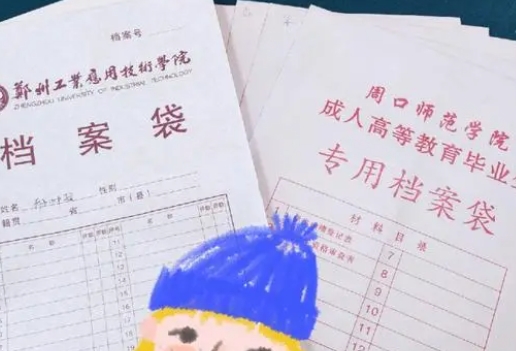 档案号
郑州工业应用技术学院
ZHENGZHOU UNIVERSITY OF INDUSTRIAL TECHNOLOGY
档案袋
姓名
性别
籍贯
省
市(县)
名称
名称
11
12
周口师范学院
成人高等教育毕业
专用档案袋
材料目录
7
8
9
10
11
12